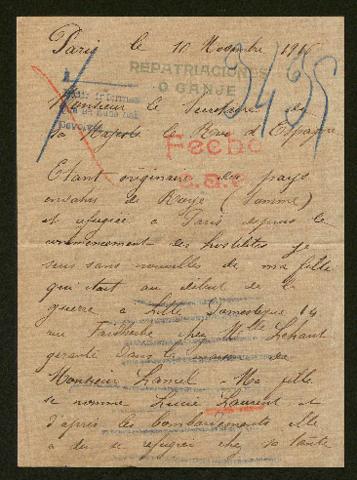 Paris le 10 Novembre 1916
REPATRIACIONES
O GANJE
Monsieur le Secretaire de
Sa Majesté le Roi d'Espagne
Fecho
Etant originaire des pays
envahis de Roye (Somme)
et refugiée à Paris depuis le
commencement des hostilités je
suis sans nouvelles de ma fille
qui était au début de la
guerre à Lille Domestique 64
rue Faidherbe chez Mlle
gerante dans la maison de
Monsieur Lamel - Ma fille
se nomme Lucie Laurent et
d'après les bombardements elle
a du se refugier chez sa tante